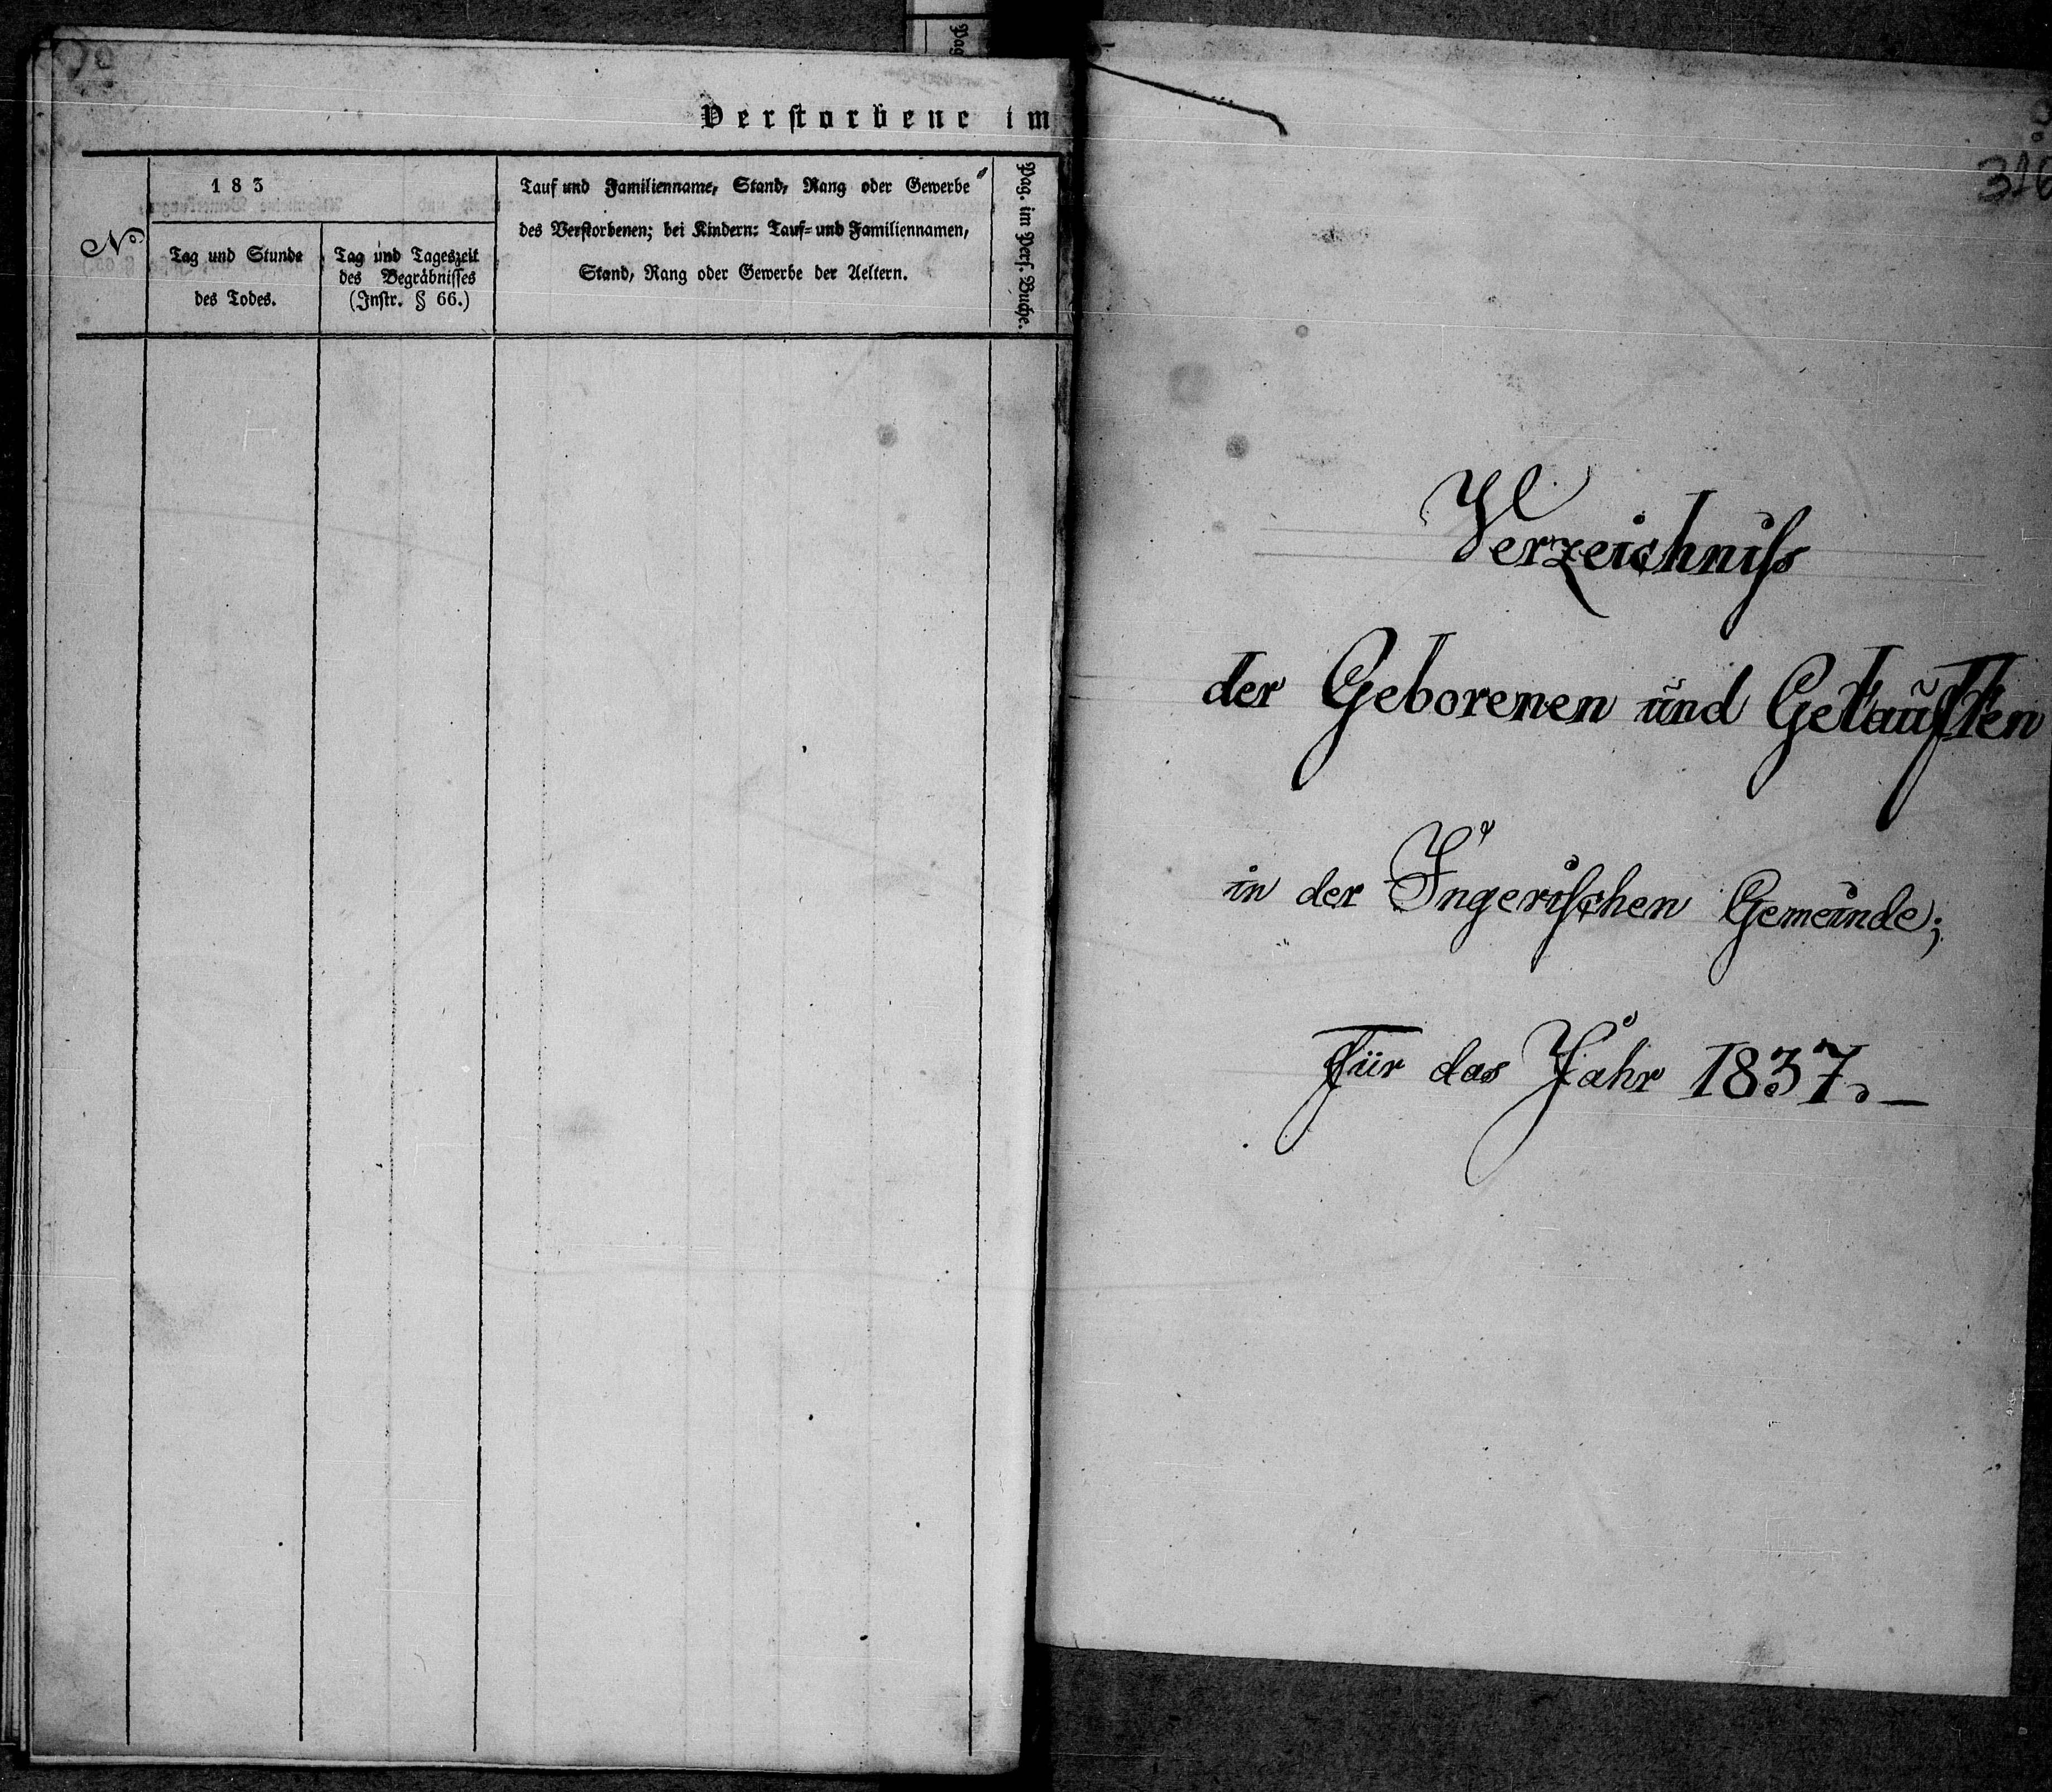 Verstorbene im
No
183
Tag und Stunde
des Todes.
Tag und Tageszeit
des Begräbnisses
(Instr. § 66.)
Tauf und Familienname, Stand, Rang oder Gewerbe
des Verstorbenen; bei Kindern: Tauf- und Familiennamen,
Stand, Rang oder Gewerbe der Aeltern.
Pag. im Pers. Buche.
Pag
Verzeichniß
der Geborenen und Getauften
in der Ingerischen Gemeinde;
für das Jahr 1837. —